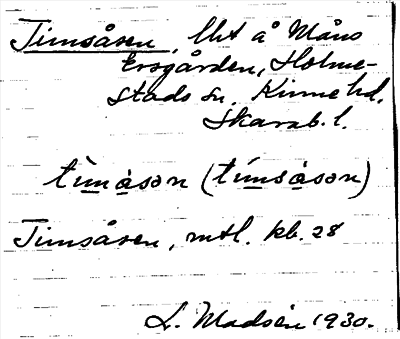 Timsåsen, lht å Måns
Ersgården, Holme-
stads sn. Kinne hd.
Skarab. l.
tìmàsən (tímsàsən)
Timsåsen, mtl. kb. 28
L. Madsén 1930.